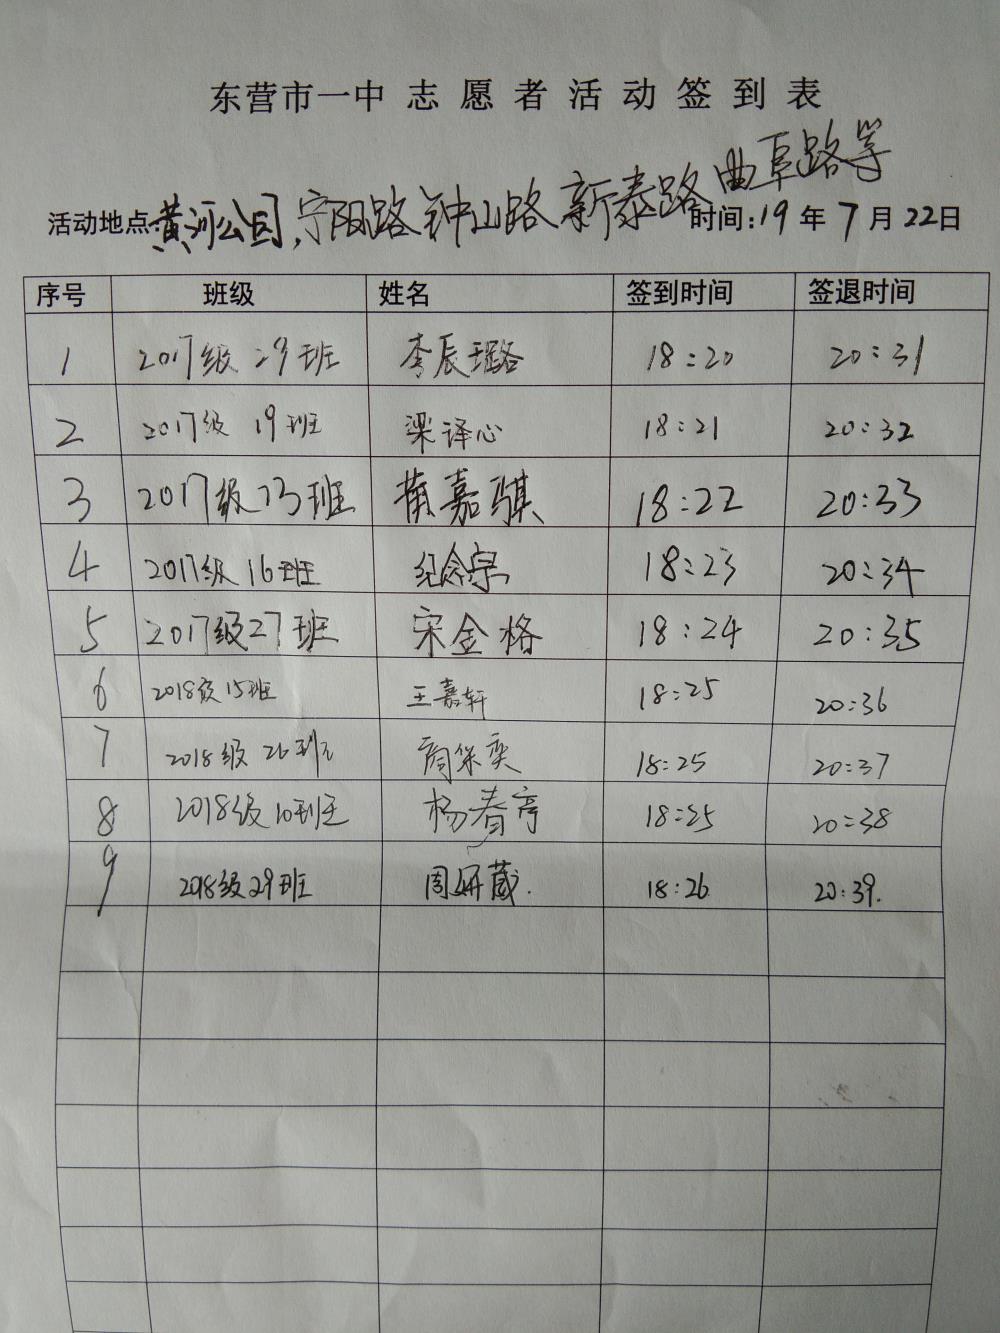 东营市一中志愿者活动签到表
活动地点黄河公园,宁阳路钟山路新泰路曲阜路等 时间:19年7月22日
序号 班级 姓名 签到时间 签退时间
1 2017级29班 李辰璐 18:20 20:31
2 2017级 19班 梁译心 18:21 20:32
3 2017级13班 嘉骐 18:22 20:33
4 2017级16班 纪念宗 18:23 20:34
5 2017级27班 宋金格 18:24 20:35
6 2018级15班 王嘉轩 18:25 20:36
7 2018级 26班 周保奕 18:25 20:37
8 2018级10班 杨春亭 18:25 20:38
9 2018级29班 周妍葳. 18:26 20:39.